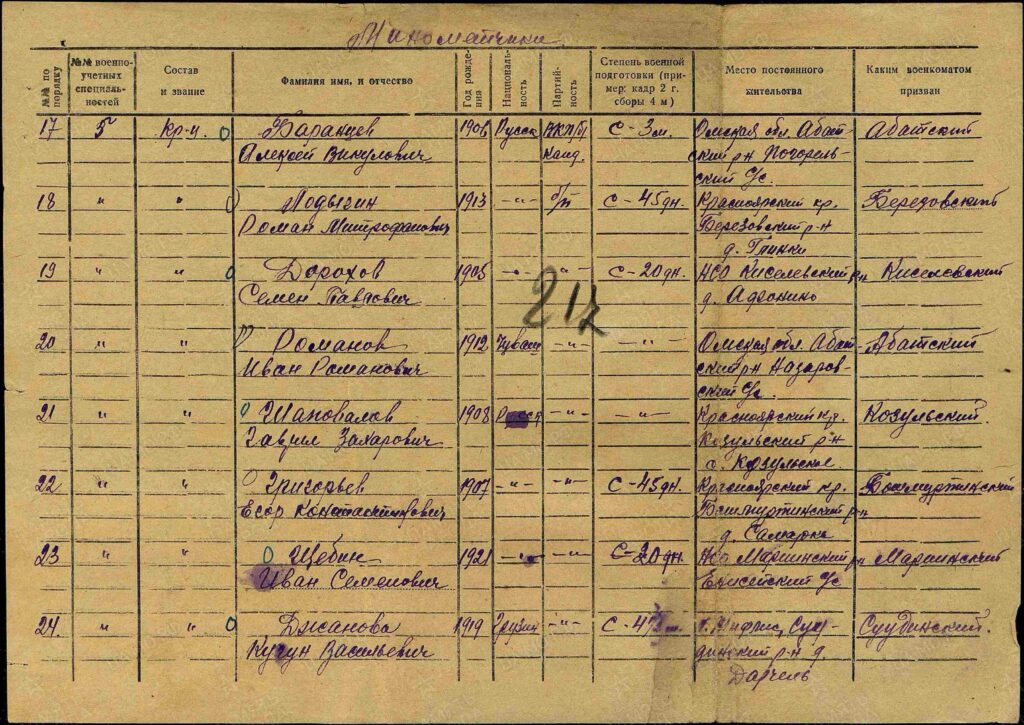 Минометчики
№№ по порядку
№№ военно-учетных специальностей
Состав и звание
Фамилия имя, и отчество
Год рождения
Националь-ность
Партий-ность
Степень военной подготовки (пример: кадр 2 г. сборы 4 м)
Место постоянного жительства
Каким военкоматом призван
17 5 кр-ц Баранцев 1906 Русск ВКП/б/ С-3м. Омская обл. Абат- Абатский
Алексей Викулович канд. ский рн
ский С/с.
18 " " Лодыгин 1913 -"- б/п С-45дн. Красноярский кр. Березовский
Роман Митрофанович Березовский р-н
д. Глинки
19 " " Дорохов 1905 -"- -"- С-20дн. НСО Киселевский рн Киселевский
Семен Павлович д. Афонино
217
20 " " Романов 1912 Чуваш -"- -"- Омская обл. Абат- Абатский
Иван Романович ский рн Назаров-
ский С/с.
21 " " Шаповалов 1908 Русск -"- -"- Красноярский кр. Козульский
Гаврил Захарович Козульский р-н
с. Козульское
22 " " Григорьев 1907 -"- -"- С-45дн. Красноярский кр.
Егор Константинович р-н
д. Самарка
23 " " Щебин 1921 -"- -"- С-20дн. НСО Мариинский рн Мариинский
Иван Семенович Енисейский С/с
24. " " Джанова 1919 Грузин -"- г. Тифлис,
Васильевич динский р-н д.